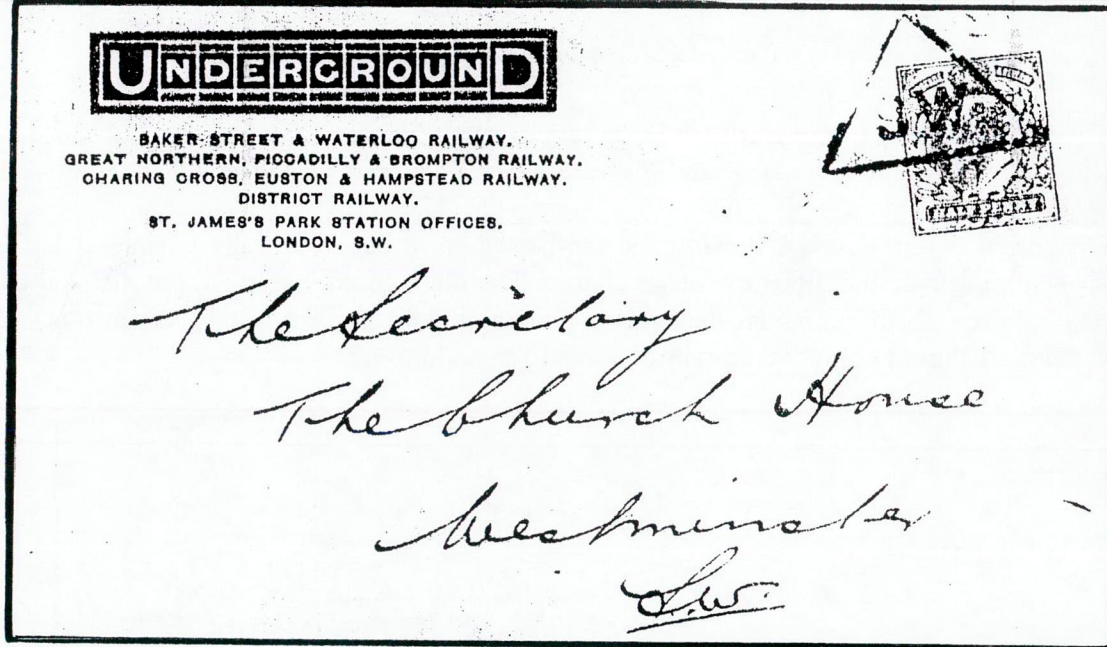 UNDERGROUND
BAKER STREET & WATERLOO RAILWAY.
GREAT NORTHERN, PICCADILLY & BROMPTON RAILWAY.
CHARING CROSS, EUSTON & HAMPSTEAD RAILWAY.
DISTRICT RAILWAY.
ST. JAMES'S PARK STATION OFFICES.
LONDON, S.W.
The Secretary
The Church House
Westminster
S.W.